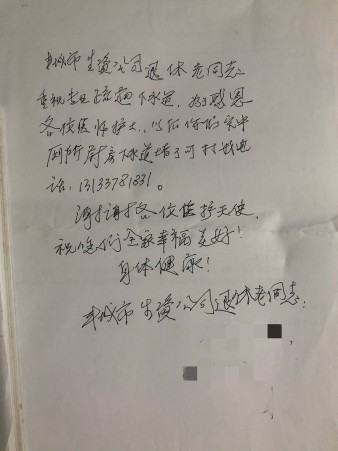 丰城市生资公司退休老同志
重视专业疏通下水道，为了感恩
各位医师护士，以后你们家中
厕所厨房下水道堵了可打我电
话：13133781831。
谢谢谢谢各位医护天使，
祝您们全家幸福美好！
身体健康！
丰城市生资公司退休老同志：